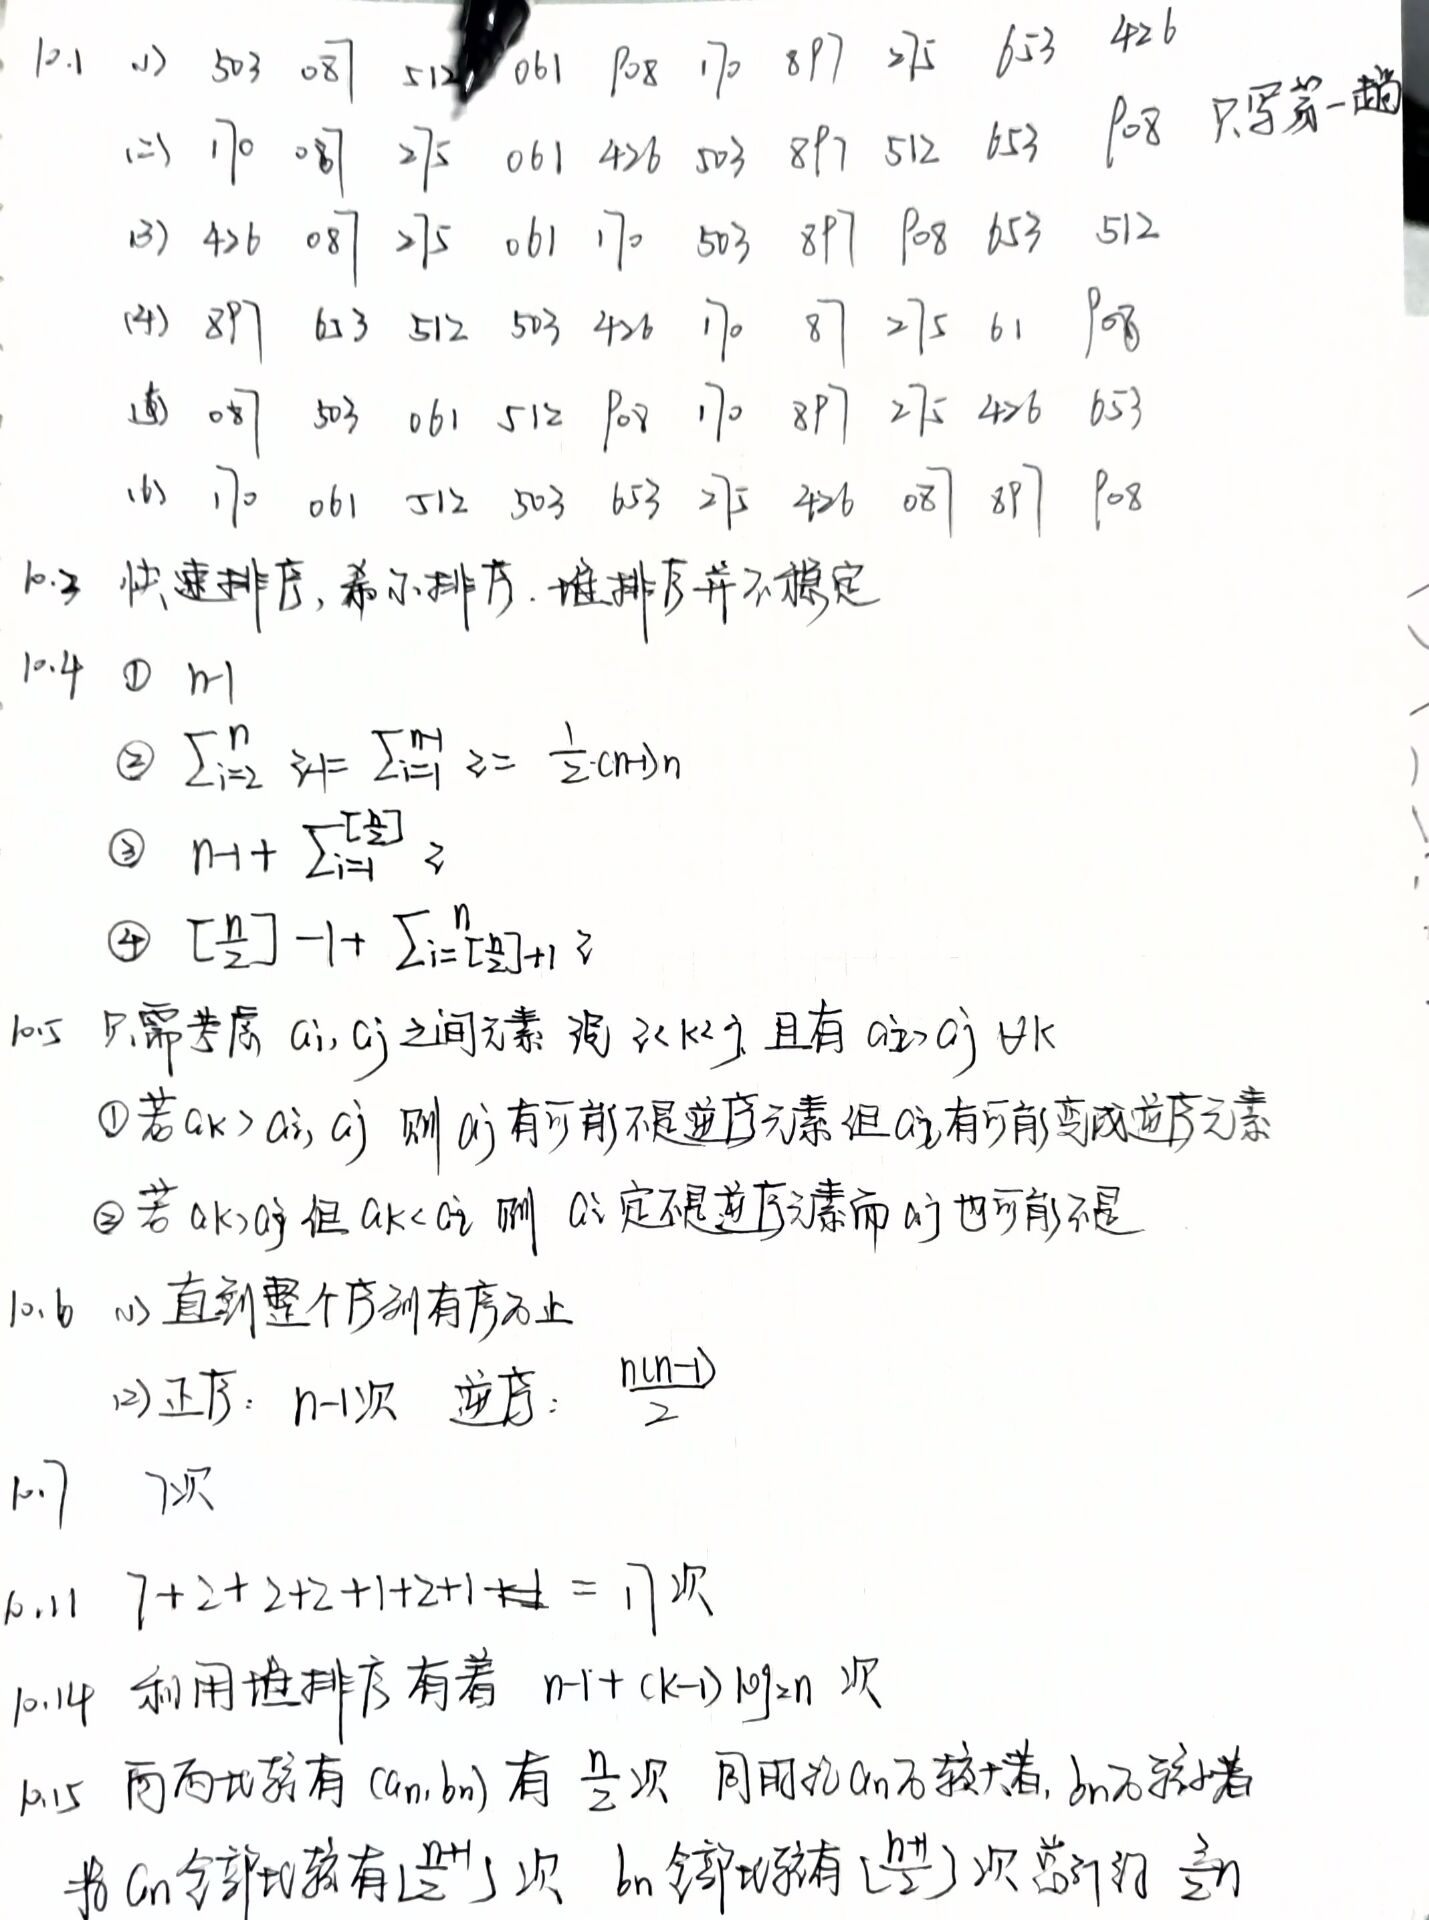 10.1 (1) 503 087 512 061 908 170 897 275 653 426
只写第一趟
(二) 170 087 275 061 426 503 897 512 653 908
(3) 426 087 275 061 170 503 897 908 653 512
(4) 897 653 512 503 426 170 87 275 61 908
(5) 087 503 061 512 908 170 897 275 426 653
(6) 170 061 512 503 653 275 426 087 897 908
10.3 快速排序, 希尔排序. 堆排序并不稳定
10.4 ① n-1
② ∑_{i=2}^{n} i-1 = ∑_{i=1}^{n-1} i = 1/2·(n-1)n
③ n-1 + ∑_{i=1}^{[n/2]} i
④ [n/2] -1 + ∑_{i=[n/2]+1}^{n} i
10.5 只需考虑 ai, aj 之间元素 设 i<k<j 且有 ai>aj ∀k
①若ak>ai, aj 则 aj有可能不是逆序元素但ai有可能变成逆序元素
②若ak>aj 但 ak<ai 则 ai定不是逆序元素而aj也可能不是
10.6 (1) 直到整个序列有序为止
(2) 正序: n-1次 逆序: n(n-1)/2
10.7 7次
10.11 7+2+2+2+1+2+1 = 17次
10.14 利用堆排序有着 n-1+(k-1)log2n 次
10.15 两两比较有 (an, bn) 有 n/2 次 同用 an为较大者, bn为较小者
an全部比较有⌊n+1/2⌋次 bn全部比较有⌊n+1/2⌋次 总计约 3/2n